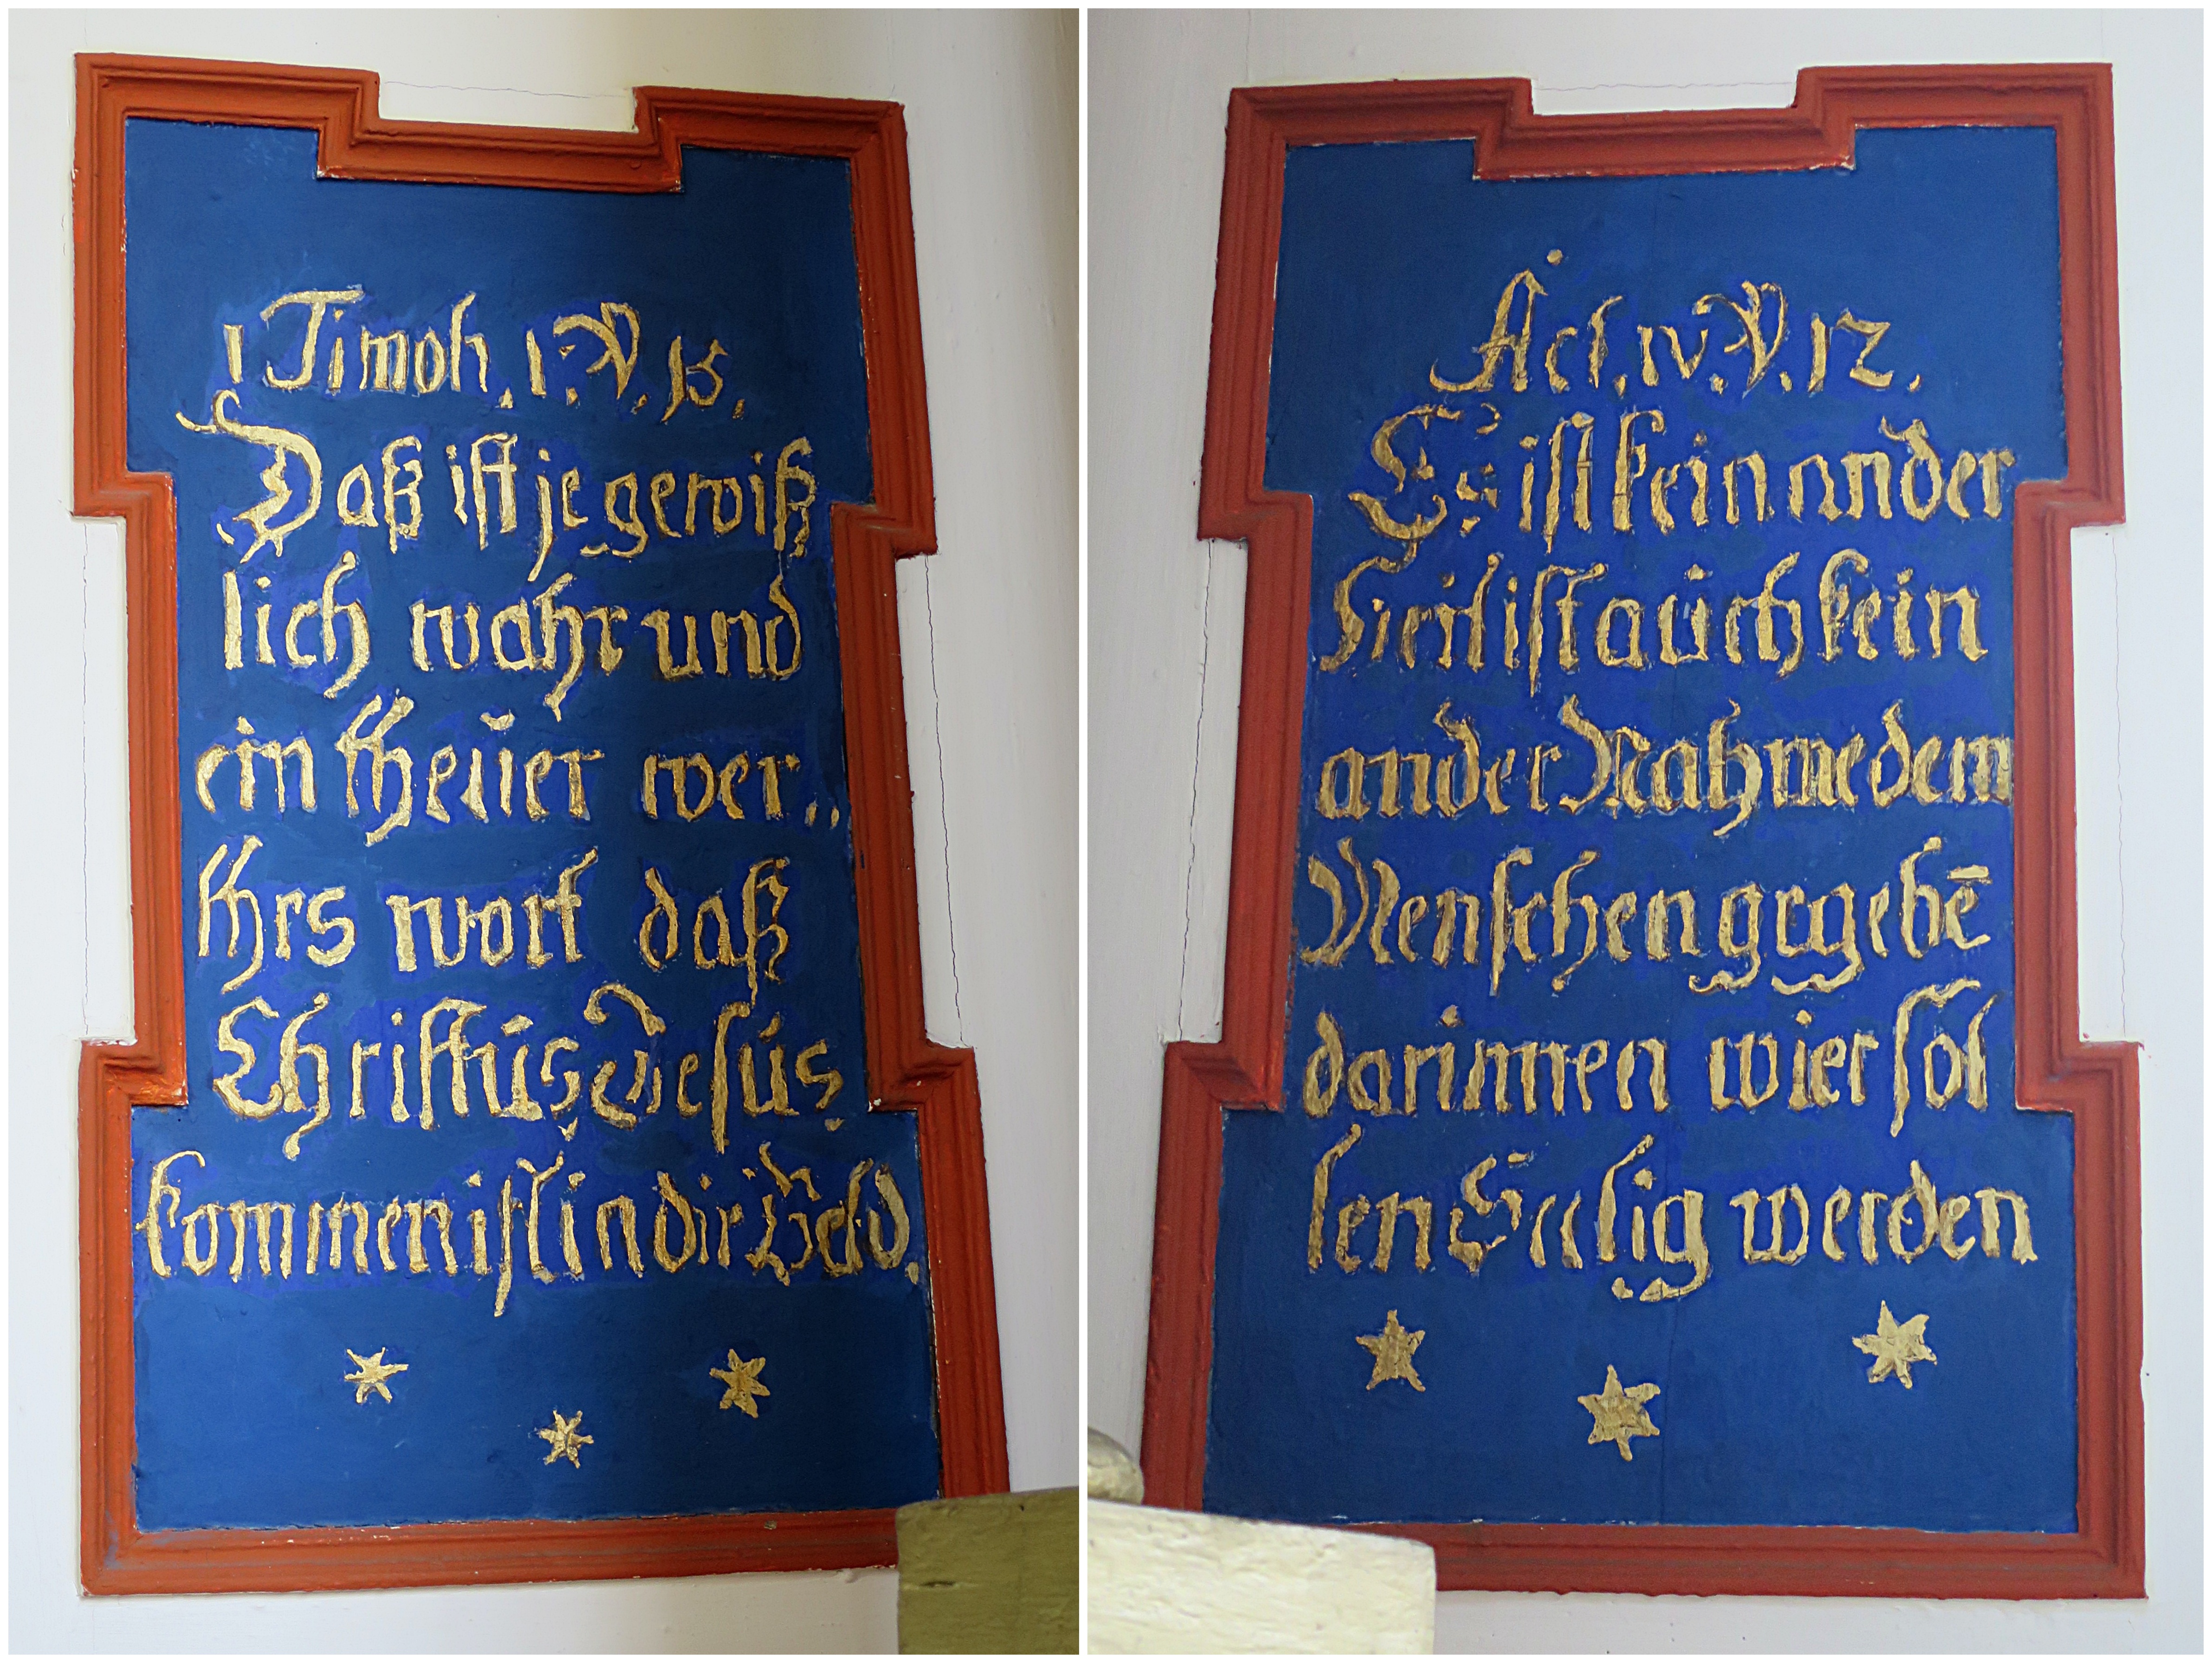 1 Timoh. 1. V. 15.
Daß ist je gewiß
lich wahr und
ein theŭer wer„
thrs wort daß
Christŭs Jesús
kommen ist in die Weld.
Act. IV. V. 12.
Es ist kein ander
heil ist aŭch kein
ander Nahme dem
Menschen gegebē
darinnen wier sol
len Seelig werden